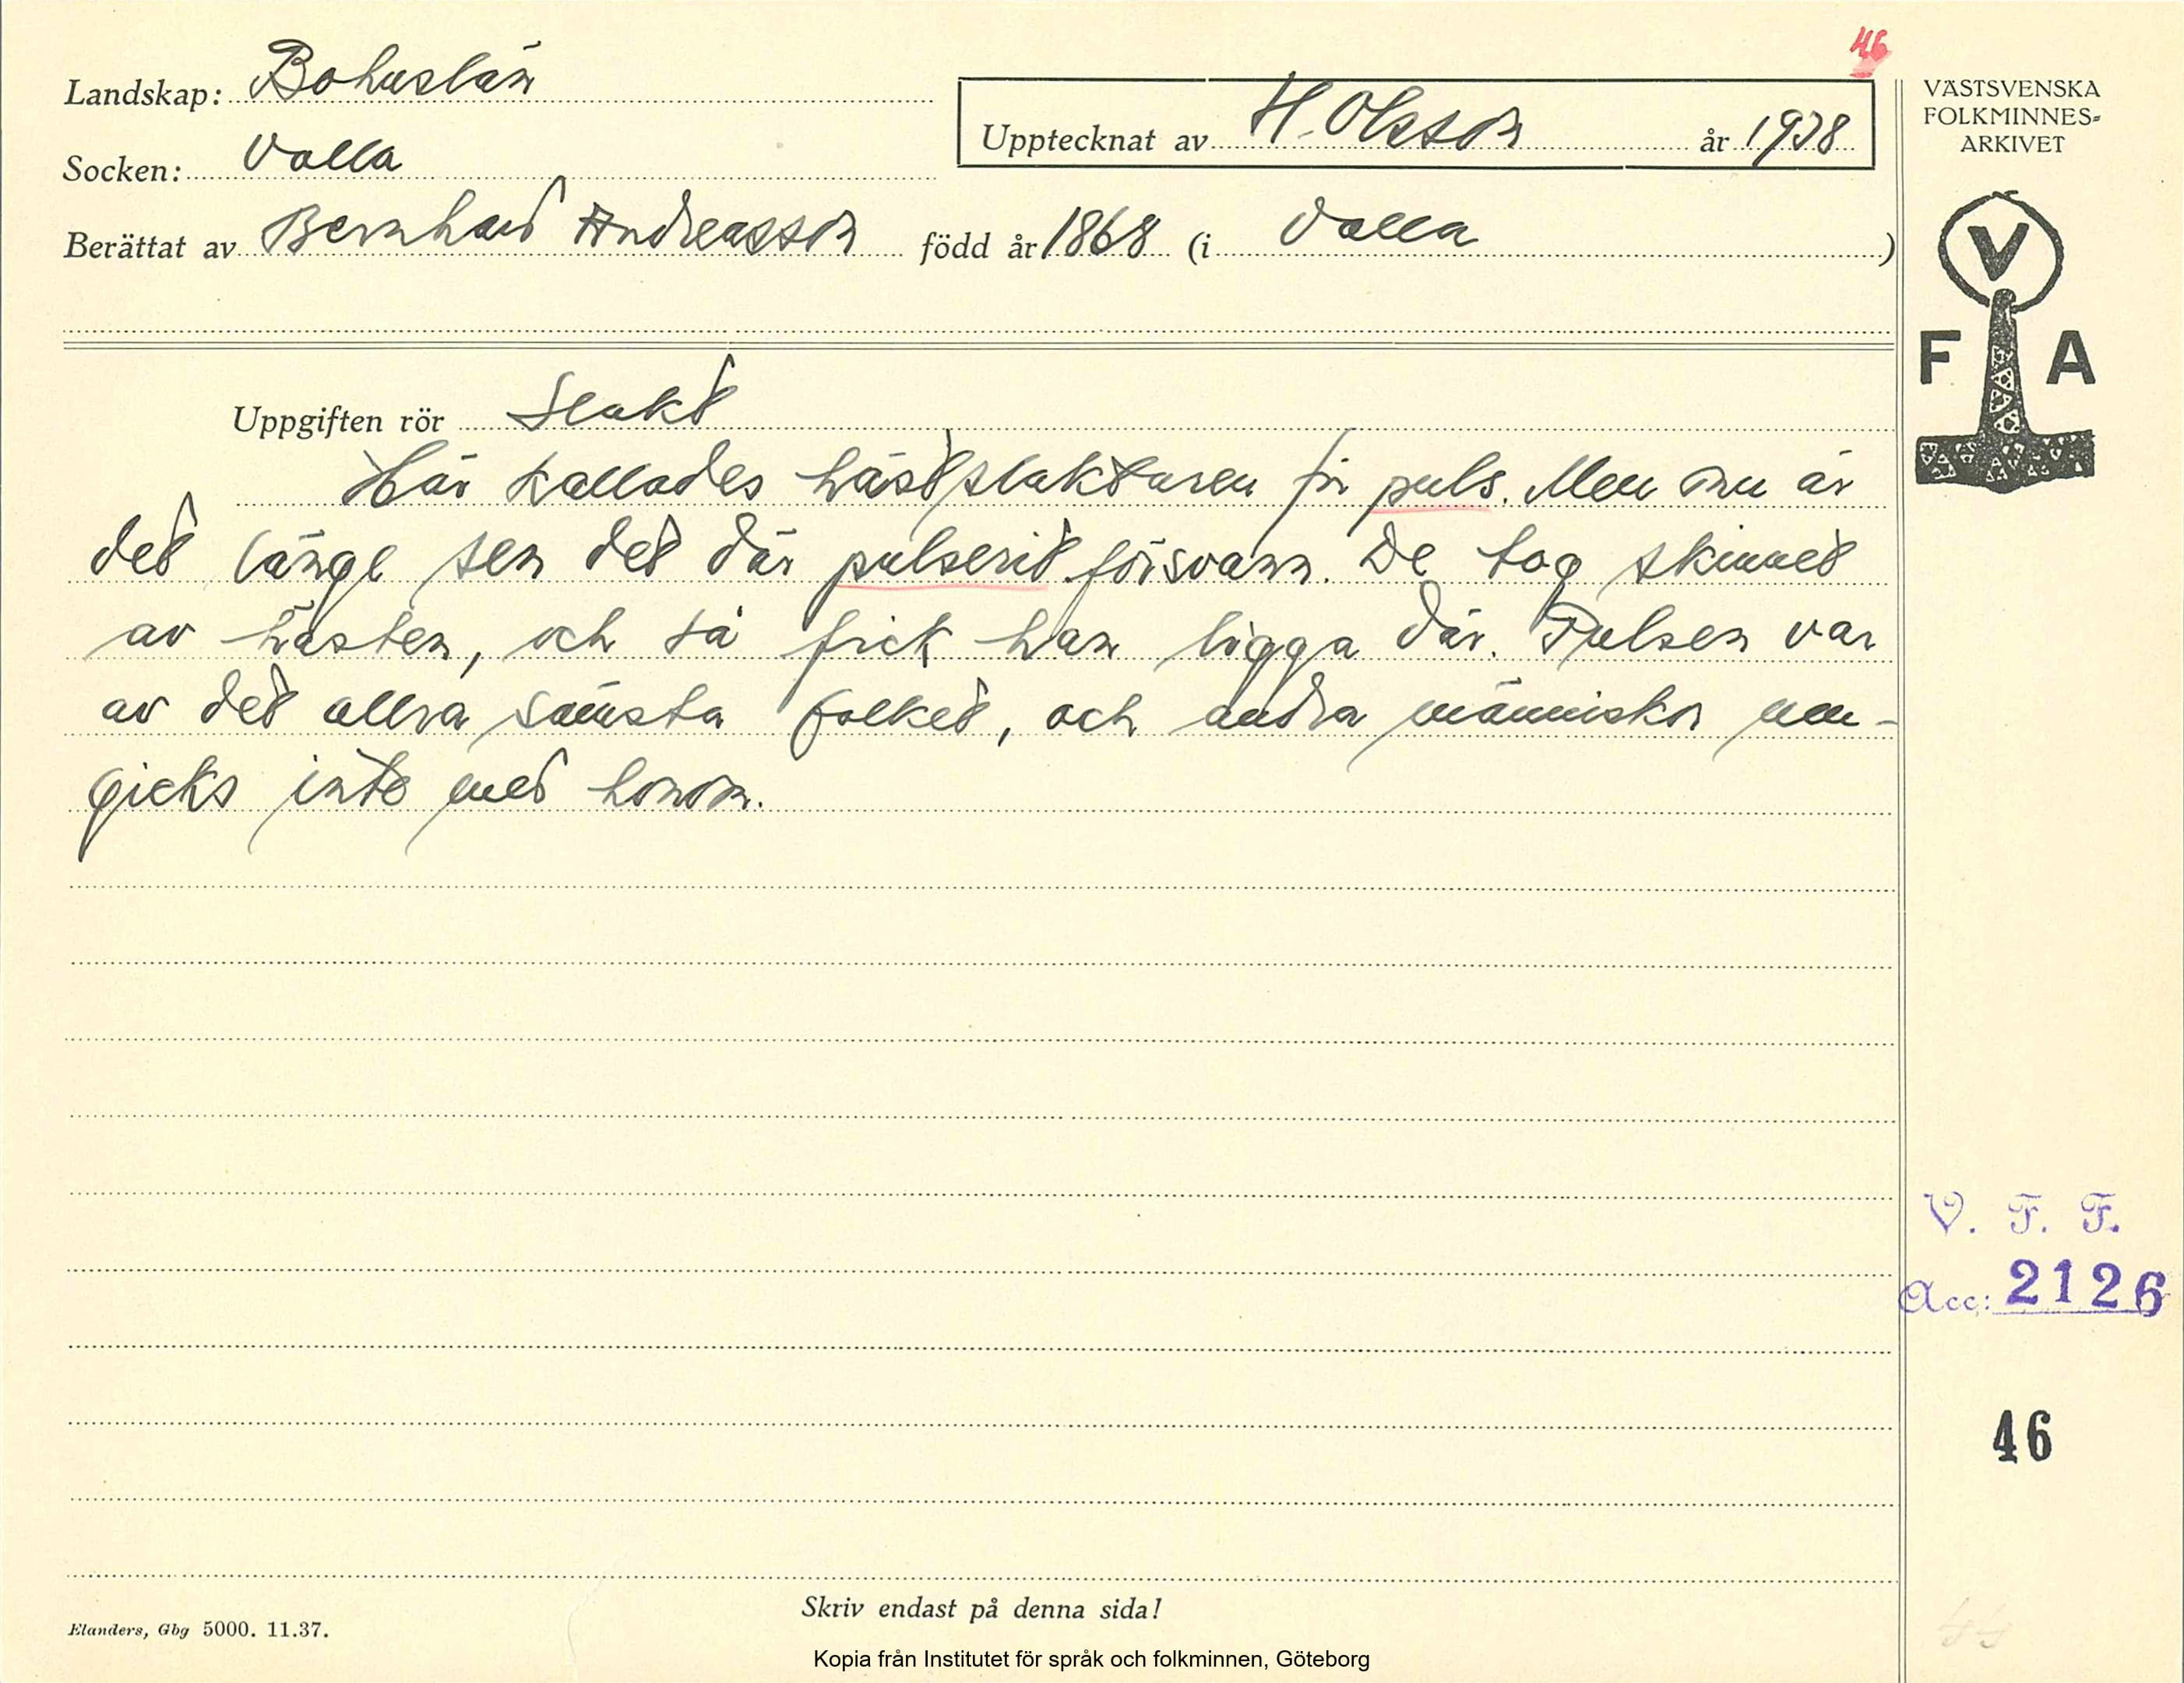 46
Landskap: Bohuslän
Upptecknat av H. Olsson år 1938
Socken: Valla
Berättat av Bernhard Andreasson född år 1868 (i Valla)
VÄSTSVENSKA
FOLKMINNES-
ARKIVET
V
F A
Uppgiften rör Slakt
Här kallades hästslaktaren för puls. Men nu är
det länge sen det där pulseriet försvann. De tog skinnet
av hästen, och så fick han ligga där. Pulsen var
av det allra sämsta folket, och andra människor um-
gicks inte med honom.
V. F. F.
Acc: 2126
46
Skriv endast på denna sida!
Elanders, Gbg 5000. 11.37.
Kopia från Institutet för språk och folkminnen, Göteborg